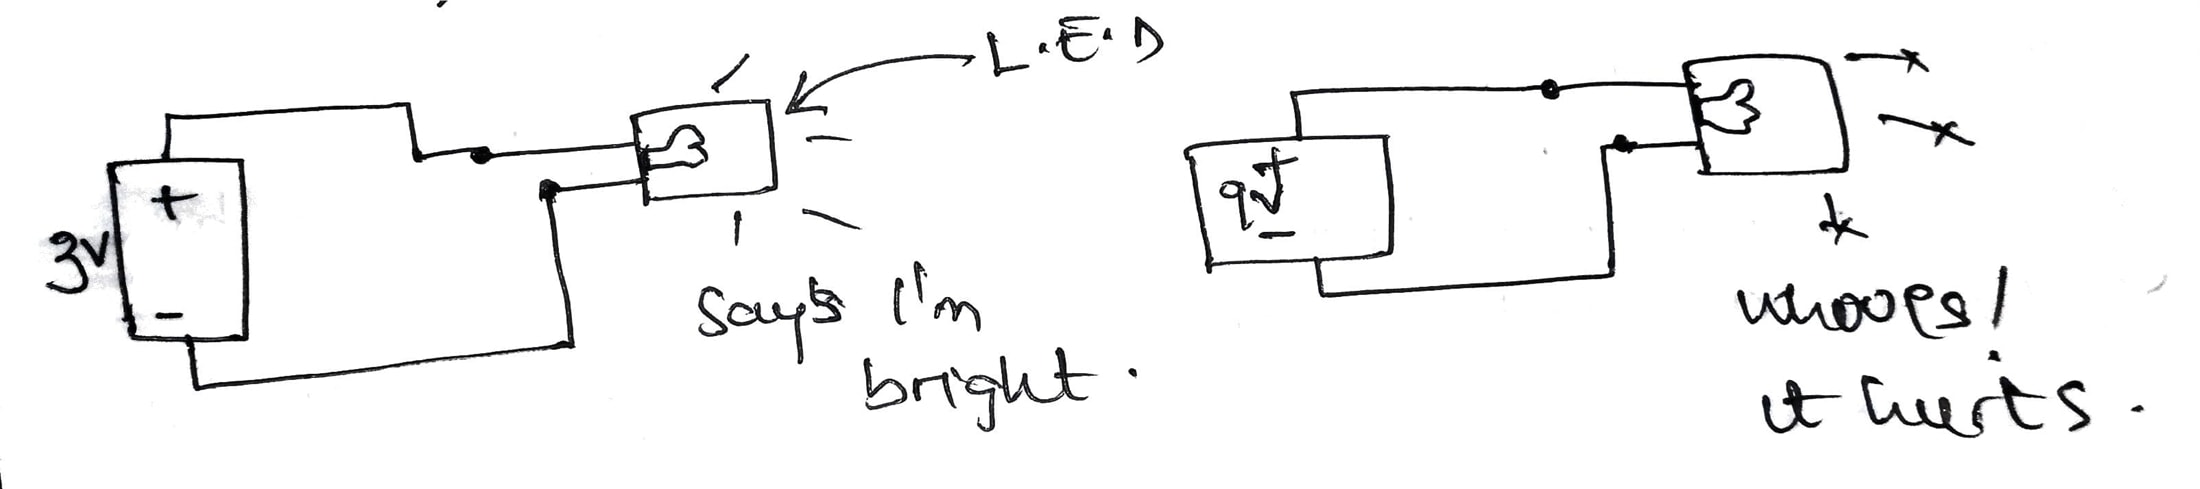 L.E.D
+
3V
-
says I'm
bright.
+
9V
-
whoops!
it hurts.